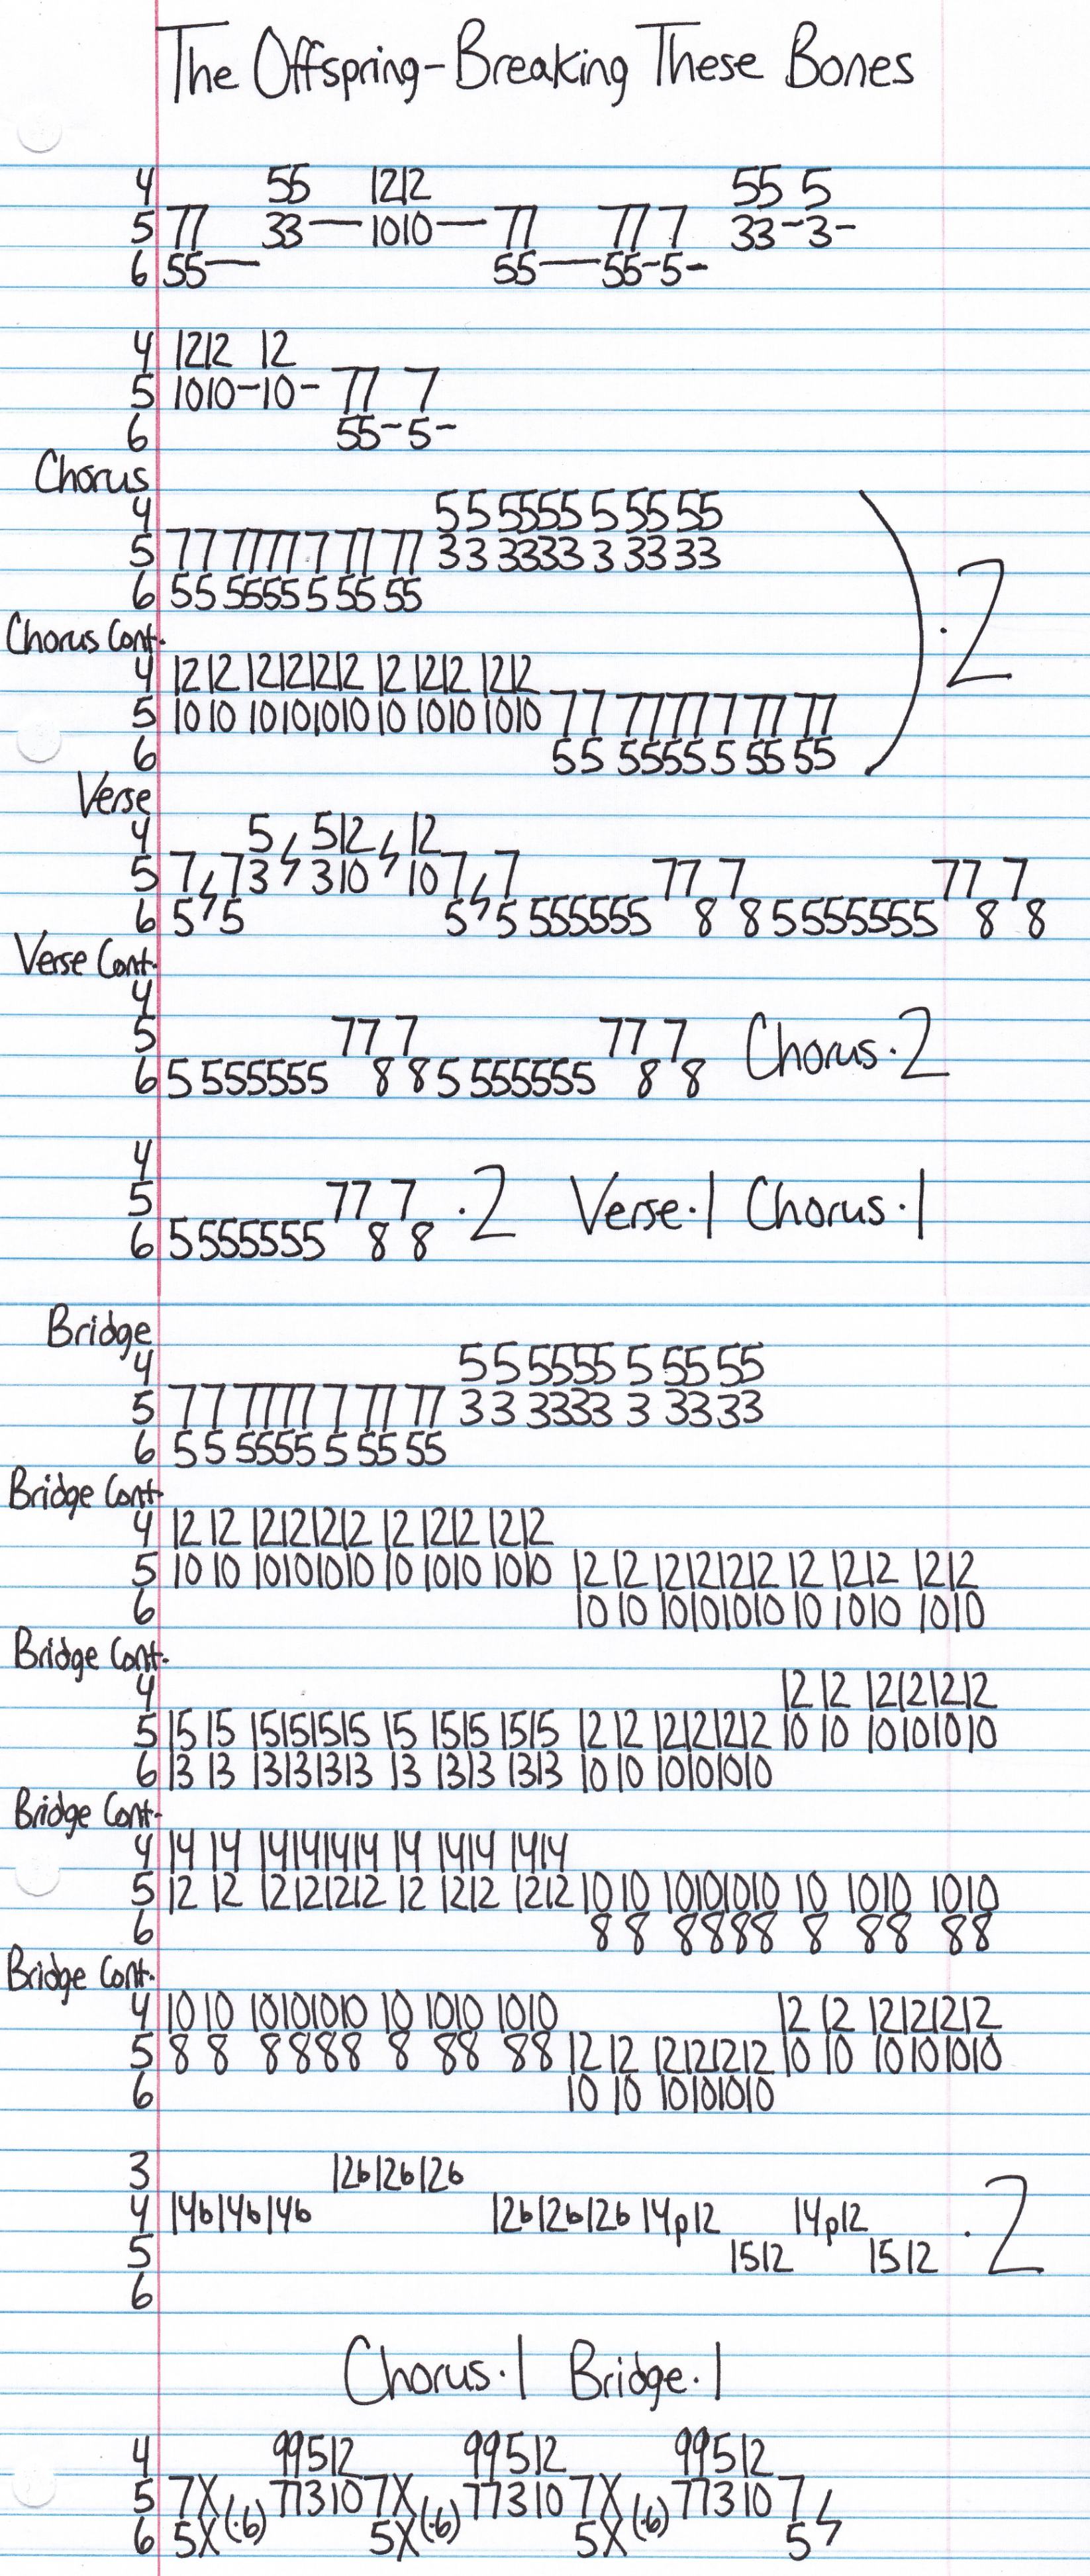 The Offspring-Breaking These Bones
4 55 1212 55 5
5 77 33— 1010— 77 77 7 33-3-
6 55— 55—55-5-
4 1212 12
5 1010-10- 77 7
6 55-5-
Chorus
4 5 5 5555 5 55 55
5 7 7 7777 7 77 77 3 3 3333 3 33 33
6 5 5 5555 5 55 55
·2
Chorus Cont.
4 12 12 12121212 12 1212 1212
5 10 10 10101010 10 1010 1010 7 7 7777 7 77 77
6 5 5 5555 5 55 55
Verse
4 5 / 512 / 12
5 7/73 / 310 / 107/7 77 7 77 7
6 5/5 5/5 555555 8 8 5555555 8 8
Verse Cont.
4
5 77 7 77 7 Chorus·2
6 5 555555 8 8 5 555555 8 8
4
5 77 7 ·2 Verse·1 Chorus·1
6 5555555 8 8
Bridge
4 5 5 5555 5 55 55
5 7 7 7777 7 77 77 3 3 3333 3 33 33
6 5 5 5555 5 55 55
Bridge Cont.
4 12 12 12121212 12 1212 1212
5 10 10 10101010 10 1010 1010 12 12 12121212 12 1212 1212
6 10 10 10101010 10 1010 1010
Bridge Cont.
4 12 12 12121212
5 15 15 15151515 15 1515 1515 12 12 12121212 10 10 10101010
6 13 13 13131313 13 1313 1313 10 10 10101010
Bridge Cont.
4 14 14 14141414 14 1414 1414
5 12 12 12121212 12 1212 1212 10 10 10101010 10 1010 1010
6 8 8 8888 8 88 88
Bridge Cont.
4 10 10 10101010 10 1010 1010 12 12 12121212
5 8 8 8888 8 88 88 12 12 12121212 10 10 10101010
6 10 10 10101010
3 12b12b12b
4 14b14b14b 12b12b12b 14p12 14p12 ·2
5 1512 1512
6
Chorus·1 Bridge·1
4 99512 99512 99512
5 7X 77310 7X 77310 7X 77310 7/
6 5X(·6) 5X(·6) 5X(·6) 5/